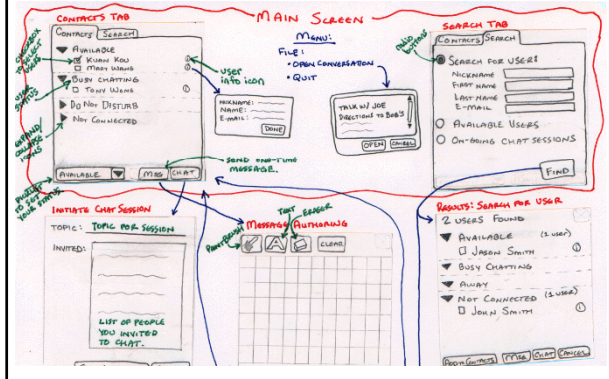 MAIN SCREEN
CONTACTS TAB
CONTACTS SEARCH
AVAILABLE
KUAN KOU
MARY WANG
BUSY CHATTING
TONY WANG
DO NOT DISTURB
NOT CONNECTED
AVAILABLE
MSG CHAT
CHECKBOX
TO SELECT
USERS
USER
STATUS
EXPAND/
COLLAPSE
ICONS
PULLIST
TO SET
YOUR STATUS.
USER
info icon
SEND ONE-TIME
MESSAGE.
NICKNAME:
NAME:
E-MAIL:
DONE
MENU:
FILE:
• OPEN CONVERSATION
• QUIT
TALK W/ JOE
DIRECTIONS TO BOB'S
OPEN CANCEL
SEARCH TAB
CONTACTS SEARCH
RADIO
BUTTONS
SEARCH FOR USER:
NICKNAME
FIRST NAME
LAST NAME
E-MAIL
AVAILABLE USERS
ON-GOING CHAT SESSIONS
FIND
INITIATE CHAT SESSION
TOPIC: TOPIC FOR SESSION
INVITED:
LIST OF PEOPLE
YOU INVITED
TO CHAT.
MESSAGE AUTHORING
PAINTBRUSH
TEXT
ERASER
A
CLEAR
RESULTS: SEARCH FOR USER
2 USERS FOUND
AVAILABLE (1 USER)
JASON SMITH
BUSY CHATTING
AWAY
NOT CONNECTED (1 USER)
JOHN SMITH
ADD TO CONTACTS MSG CHAT CANCEL